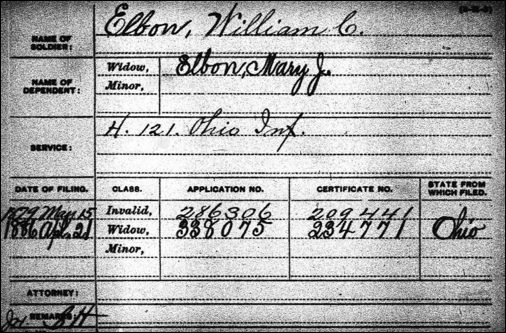 (3-313)
NAME OF SOLDIER: Elbon, William C.
NAME OF DEPENDENT: Widow, Elbon, Mary J.
Minor,
SERVICE: H. 121. Ohio Inf.
DATE OF FILING. CLASS. APPLICATION NO. CERTIFICATE NO. STATE FROM WHICH FILED.
1879 May 15 Invalid, 286306 209441
1886 Apl. 21 Widow, 338075 234771 Ohio
Minor,
ATTORNEY:
REMARKS: